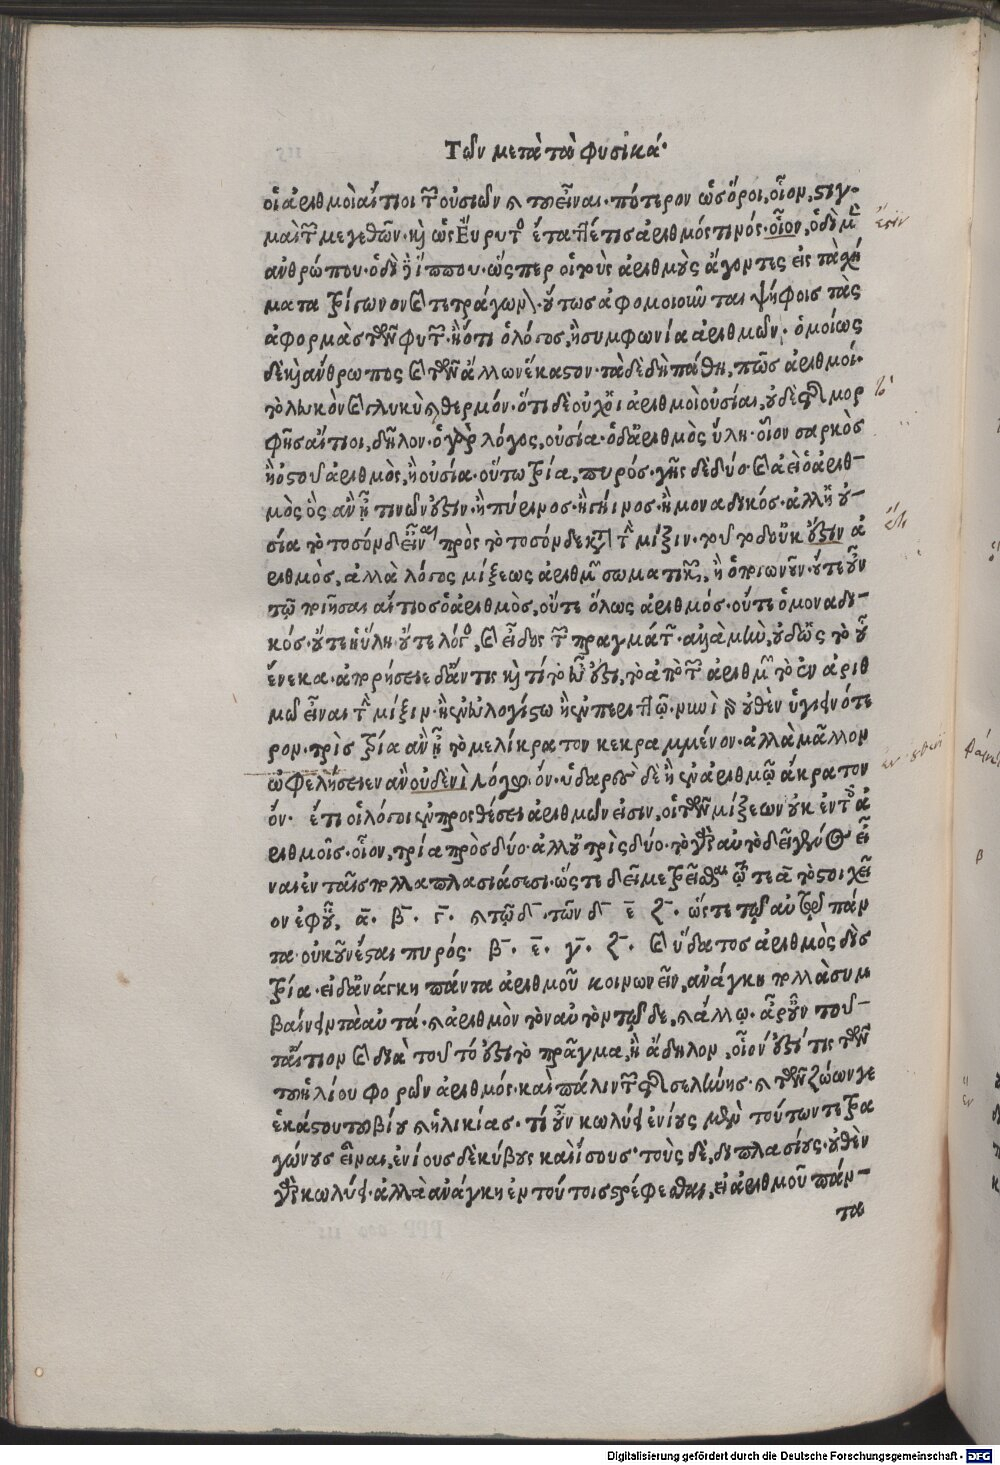 Τῶν μετὰ τὰ φυσικά·
οἱ ἀριθμοὶ αἴτιοι τῶν οὐσιῶν καὶ τοῦ εἶναι· πότερον ὡς ὅροι, οἷον, στιγ-
μαὶ τῶν μεγεθῶν· καὶ ὡς Εὔρυτος έτατ τίς ἀριθμός τινός· οἷον, ὁδὶ μὲν
ἀνθρώπου· ὁδὶ δὲ ἵππου· ὥσπερ οἱ τοὺς ἀριθμοὺς ἄγοντες εἰς τὰ χή
ματα τρίγωνον καὶ τετράγωνον· οὕτως ἀφομοιοῦν ται ψήφοις τὰς
ἀφορμὰς τῶν φυτῶν· ἢ ὅτι ὁ λόγος, ἡ συμφωνία ἀριθμῶν· ὁμοίως
δὲ καὶ ἄνθρωπος καὶ τῶν ἄλλων ἕκαστον· τὰ δὲ δὴ πάθη, πῶς ἀριθμοί·
τὸ λευκὸν καὶ γλυκὺ καὶ θερμόν· ὅτι δὲ οὐχ οἱ ἀριθμοὶ οὐσίαι, οὐδὲ τῆς μορ
φῆς αἴτιοι, δῆλον· ὁ γὰρ λόγος, οὐσία· ὁ δ' ἀριθμὸς ὕλη· οἷον σαρκὸς
ἢ ὀστοῦ ἀριθμὸς, ἡ οὐσία· οὕτω τρία, πυρός· γῆς δὲ δύο· καὶ ἀεὶ ὁ ἀριθ-
μὸς ὃς ἂν ᾖ τινῶν ἐστιν· ἢ πύρινος· ἢ γήινος· ἢ μοναδικός· ἀλλ' ἡ οὐ-
σία τὸ τοσόνδ' εἶναι πρὸς τὸ τοσόνδε κατὰ τὴν μίξιν· τοῦτο δ' οὐκ ἐστιν ἀ
ριθμὸς, ἀλλὰ λόγος μίξεως ἀριθμῶν σωματικῶν, ἢ ὁποιωνοῦν· οὔτε οὖν
τῷ ποιῆσαι αἴτιος ὁ ἀριθμὸς, οὔτε ὅλως ἀριθμός· οὔτε ὁ μοναδι-
κός· οὔτε ἡ ὕλη· οὔτε λόγος, καὶ εἶδος τῶν πραγμάτων· ἀλλὰ μὴν, οὐδ' ὡς τὸ οὗ
ἕνεκα· ἀπορήσειε δ' ἄν τις καὶ τί τὸ εὖ ἐστι, τὸ ἀπὸ τῶν ἀριθμῶν τὸ ἐν ἀριθ
μῷ εἶναι τὴν μίξιν· ἢ ἐν εὐλογίστῳ ἢ ἐν περιττῷ· νυνὶ γὰρ οὐθὲν ὑγιεινότε
ρον· τρὶς τρία ἂν ᾖ τὸ μελίκρατον κεκραμμένον· ἀλλὰ μᾶλλον
ὠφελήσειεν ἂν οὐδενὶ λόγῳ ὂν· ὑδαρὲς δὲ ἢ ἐν ἀριθμῷ ἄκρατον
ὄν· ἔτι οἱ λόγοι ἐν προσθέσει ἀριθμῶν εἰσιν, οἱ τῶν μίξεων οὐκ ἐν τοῖς ἀ
ριθμοῖς· οἷον, τρία πρὸς δύο· ἀλλ' οὐ τρὶς δύο· τὸ γὰρ αὐτὸ δεῖ γένος εἶ
ναι ἐν ταῖς πολλαπλασιάσεσι· ὥστε δεῖ μετρεῖσθαι ᾧ τε α̅ τὸ στοιχεῖ
ον ἐφ' οὗ, α̅· β̅· γ̅· καὶ τῷ δ̅· τῶν δ̅ ε̅ ζ̅· ὥστε τῷ αὐτῷ πάν
τα· οὐκοῦν ἔσται πυρός· β̅· ε̅· γ̅· ζ̅· καὶ ὕδατος ἀριθμὸς δὶς
τρία· εἰ δ' ἀνάγκη πάντα ἀριθμοῦ κοινωνεῖν, ἀνάγκη πολλὰ συμ
βαίνειν τὰ αὐτά· καὶ ἀριθμὸν τὸν αὐτὸν τῷδε, καὶ ἄλλῳ· ἆρ' οὖν τοῦ-
τ' αἴτιον καὶ διὰ τοῦτό ἐστι τὸ πρᾶγμα, ἢ ἄδηλον, οἷον ἐστί τις τῶν
τοῦ ἡλίου φορῶν ἀριθμός· καὶ πάλιν τῶν τῆς σελήνης· καὶ τῶν ζώων γε
ἑκάστου τοῦ βίου καὶ ἡλικίας· τί οὖν κωλύει ἐνίους μὲν τούτων τετρα
γώνους εἶναι, ἐνίους δὲ κύβους καὶ ἴσους· τοὺς δὲ, διπλασίους· οὐθὲν
γὰρ κωλύει· ἀλλὰ ἀνάγκη ἐν τούτοις στρέφεσθαι, εἰ ἀριθμοῦ πάν-
τα
Digitalisierung gefördert durch die Deutsche Forschungsgemeinschaft - DFG